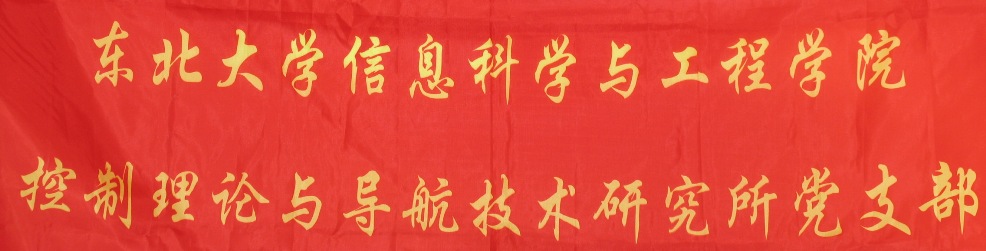 东北大学信息科学与工程学院
控制理论与导航技术研究所党支部